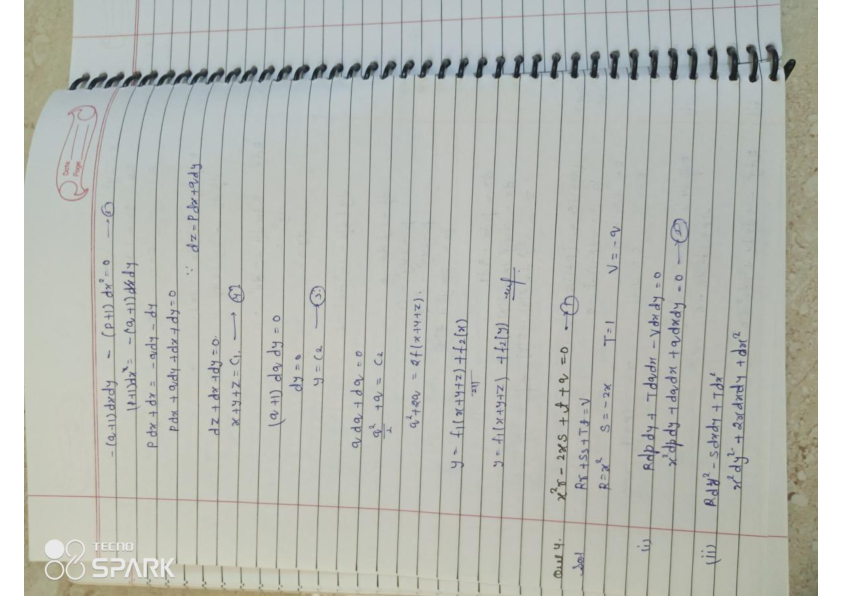 Date
Page
-(q+1) dxdy - (p+1) dx² = 0 —②
(p+1)dx² = -(q+1) dxdy
pdx + dx = -qdy - dy
pdx + qdy + dx + dy = 0
∵ dz = pdx + qdy
dz + dx + dy = 0
x + y + z = c₁ → ④
(q+1) dq dy = 0
dy = 0
y = c₂ —③
q dq + dq = 0
q²/2 + q = c₂
q² + 2q = 2f(x+y+z).
y = f₁(x+y+z) + f₂(x)
y = f₁(x+y+z) + f₂(y)
Que 4. x²r - 2xs + t + q = 0 —①
Sol Rr + Ss + Tt = V
R = x² S = -2x T = 1 V = -q
(i) Rdpdy + Tdqdx - Vdxdy = 0
x²dpdy + dqdx + qdxdy = 0 —②
(ii) Rdy² - Sdxdy + Tdx²
x²dy² + 2xdxdy + dx²
TECNO
SPARK